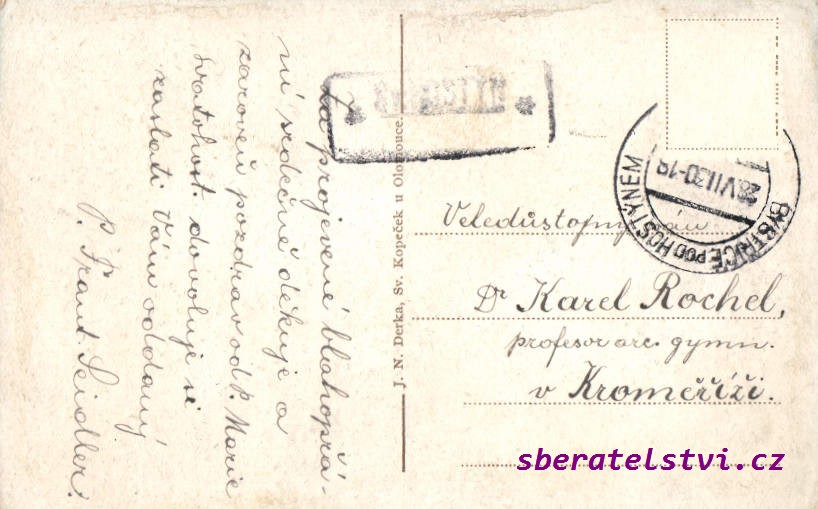 Za projevené blahopřá-
ní srdečně děkuje a
zároveň pozdrav od P. Marie
Svatohost. dovoluje si
zaslati Vám oddaný
P. Frant. Seidler.
J. N. Derka, Sv. Kopeček u Olomouce.
BYSTŘICE POD HOSTÝNEM
28.VII.30-18
Veledůstojný pán
Dr Karel Rochel,
profesor arc. gymn.
v Kroměříži.
sberatelstvi.cz